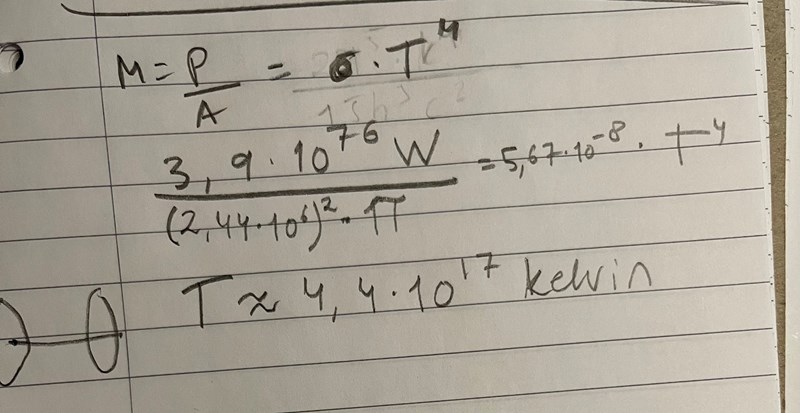 M = P/A = σ · T⁴
3,9 · 10⁷⁶ W / (2,44 · 10⁶)² · π = 5,67 · 10⁻⁸ · T⁴
T ≈ 4,4 · 10¹⁷ kelvin